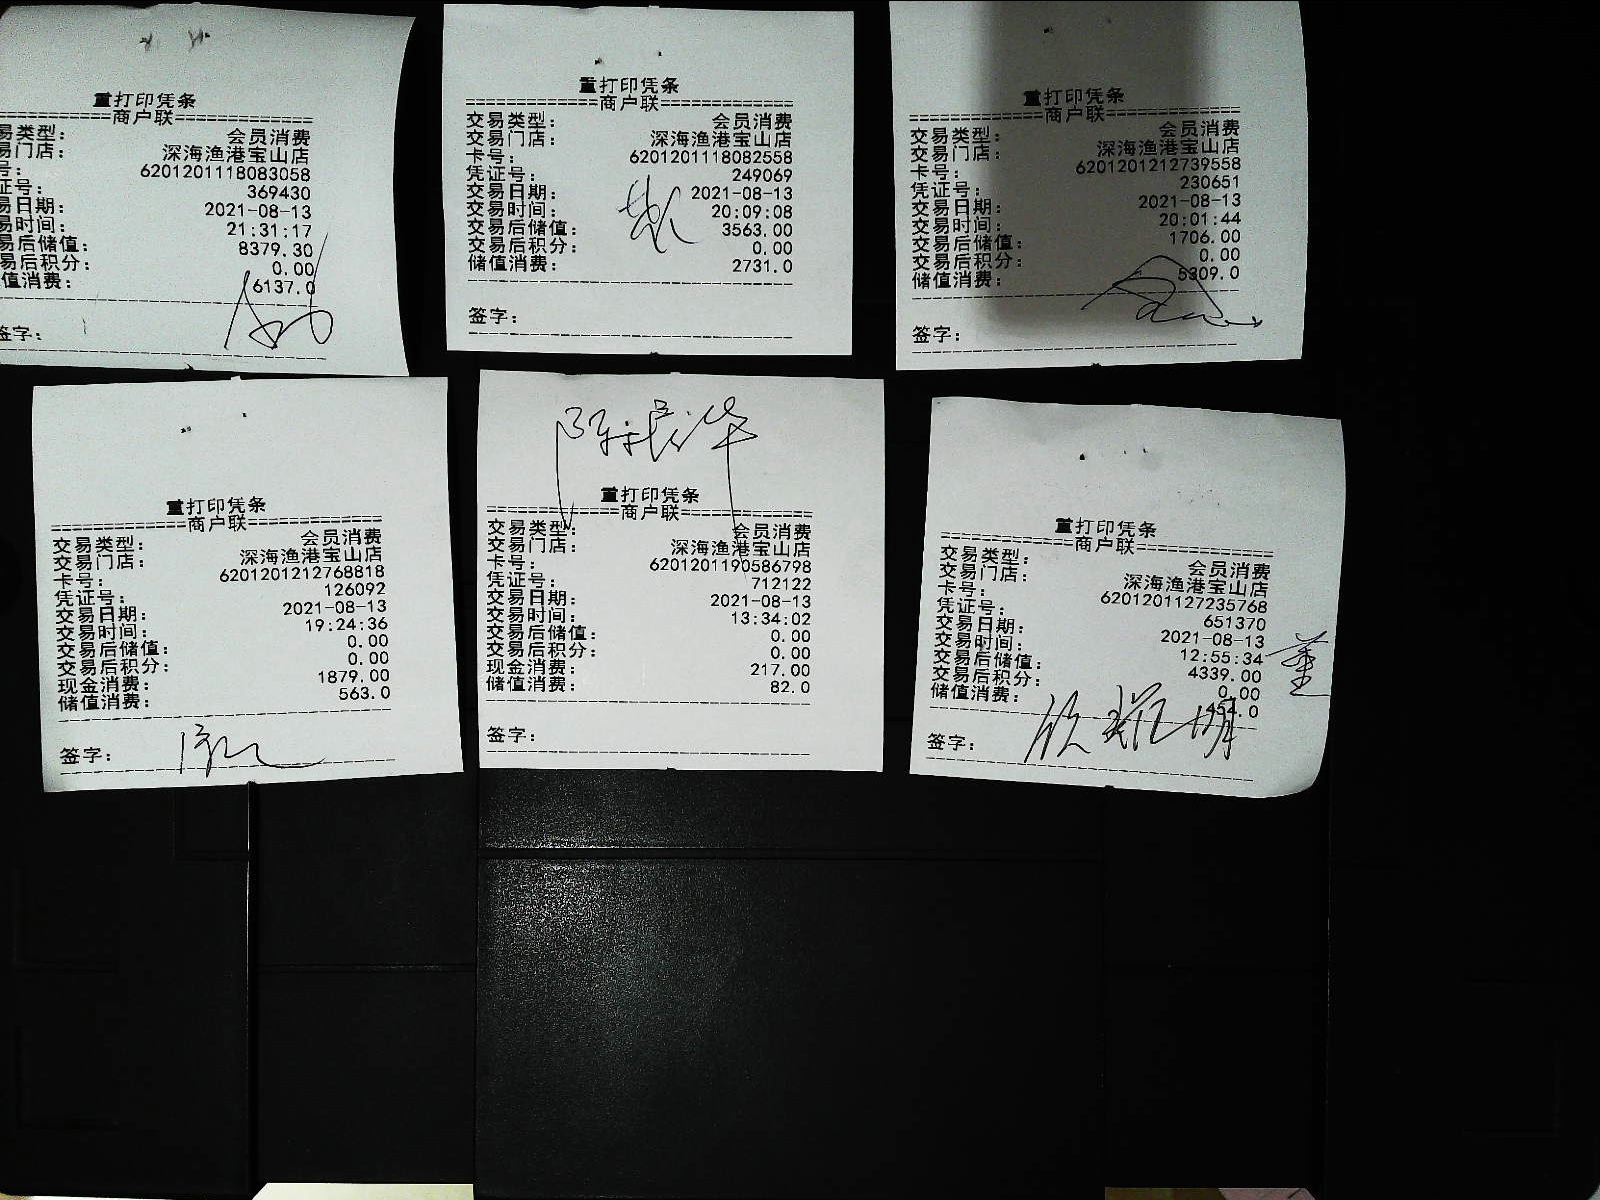 重打印凭条
============商户联============
易类型: 会员消费
易门店: 深海渔港宝山店
号: 6201201118083058
证号: 369430
易日期: 2021-08-13
易时间: 21:31:17
易后储值: 8379.30
易后积分: 0.00
值消费: 6137.0
签字:
重打印凭条
============商户联============
交易类型: 会员消费
交易门店: 深海渔港宝山店
卡号: 6201201118082558
凭证号: 249069
交易日期: 2021-08-13
交易时间: 20:09:08
交易后储值: 3563.00
交易后积分: 0.00
储值消费: 2731.0
签字:
重打印凭条
============商户联============
交易类型: 会员消费
交易门店: 深海渔港宝山店
卡号: 6201201212739558
凭证号: 230651
交易日期: 2021-08-13
交易时间: 20:01:44
交易后储值: 1706.00
交易后积分: 0.00
储值消费: 5309.0
签字:
重打印凭条
============商户联============
交易类型: 会员消费
交易门店: 深海渔港宝山店
卡号: 6201201212768818
凭证号: 126092
交易日期: 2021-08-13
交易时间: 19:24:36
交易后储值: 0.00
交易后积分: 0.00
现金消费: 1879.00
储值消费: 563.0
签字:
重打印凭条
============商户联============
交易类型: 会员消费
交易门店: 深海渔港宝山店
卡号: 6201201190586798
凭证号: 712122
交易日期: 2021-08-13
交易时间: 13:34:02
交易后储值: 0.00
交易后积分: 0.00
现金消费: 217.00
储值消费: 82.0
签字:
重打印凭条
============商户联============
交易类型: 会员消费
交易门店: 深海渔港宝山店
卡号: 6201201127235768
凭证号: 651370
交易日期: 2021-08-13
交易时间: 12:55:34
交易后储值: 4339.00
交易后积分: 0.00
储值消费: 454.0
签字: